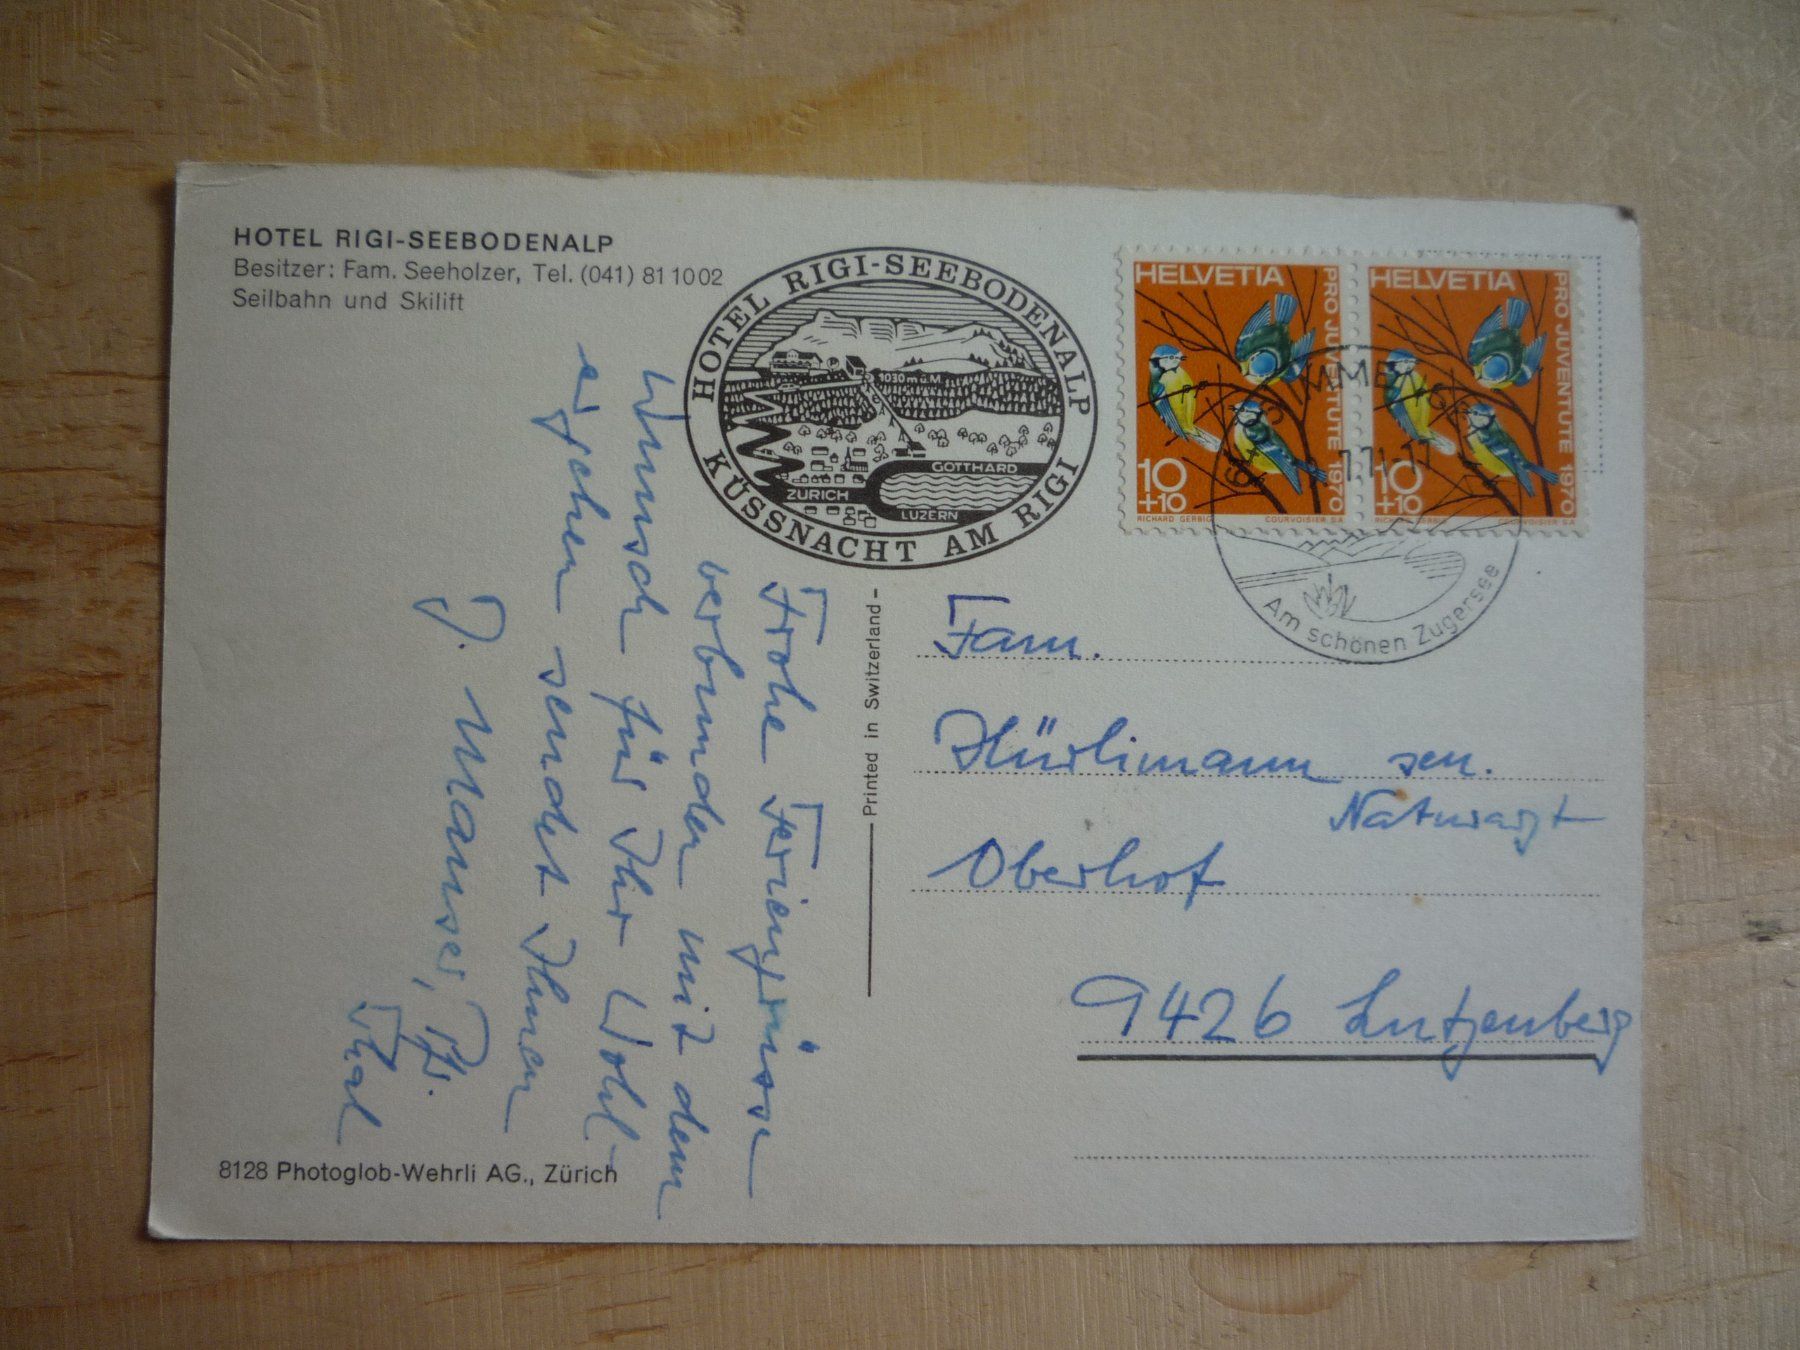 HOTEL RIGI-SEEBODENALP
Besitzer: Fam. Seeholzer, Tel. (041) 81 10 02
Seilbahn und Skilift
HOTEL RIGI-SEEBODENALP
1030 m ü.M.
GOTTHARD
ZÜRICH
LUZERN
KÜSSNACHT AM RIGI
HELVETIA
PRO JUVENTUTE 1970
10
+10
RICHARD GERBIG COURVOISIER S.A.
HELVETIA
PRO JUVENTUTE 1970
10
+10
RICHARD GERBIG COURVOISIER S.A.
Am schönen Zugersee
Frohe Feriengrüsse
verbunden mit dem
Wunsch für Ihr Wohl-
ergehen sendet Ihnen
J. Mauser, Pfr.
Thal
Printed in Switzerland
Fam.
Hürlimann sen.
Naturarzt
Oberhof
9426 Lutzenberg
8128 Photoglob-Wehrli AG., Zürich